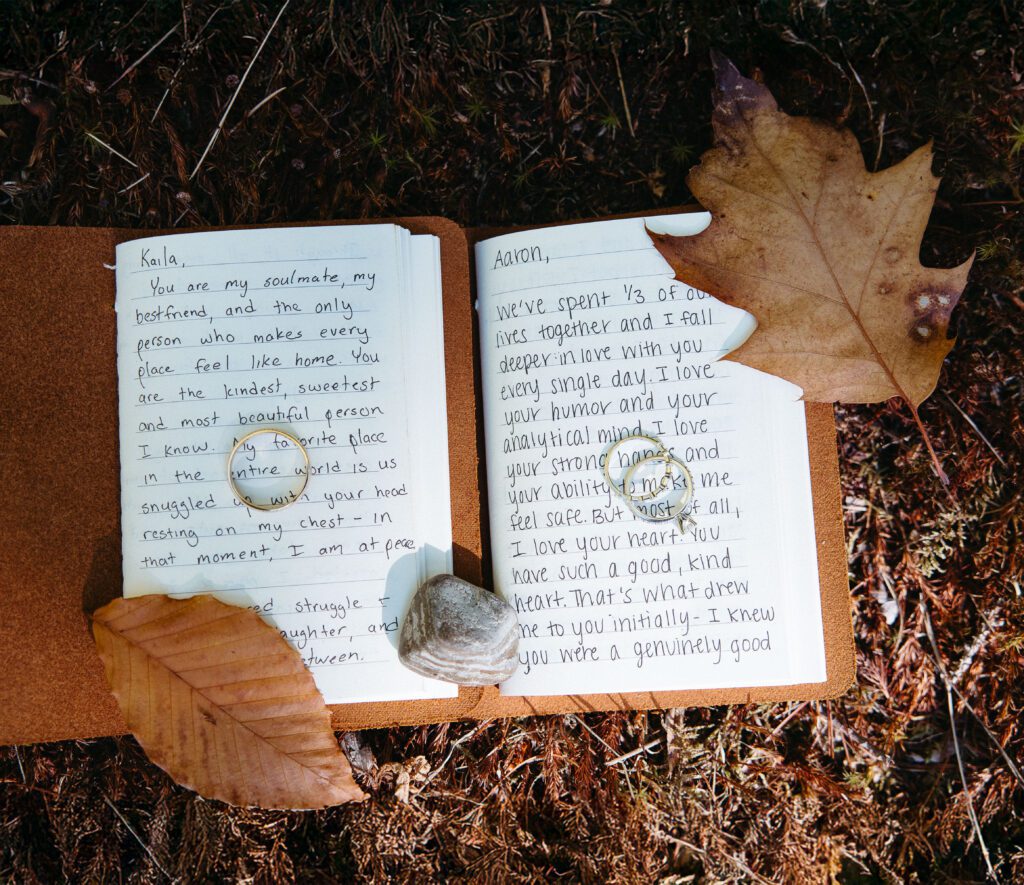 Kaila,
You are my soulmate, my
bestfriend, and the only
person who makes every
place feel like home. You
are the kindest, sweetest
and most beautiful person
I know. My favorite place
in the entire world is us
snuggled up with your head
resting on my chest - in
that moment, I am at peace
struggle I
and
between.
Aaron,
we've spent 1/3 of our
lives together and I fall
deeper in love with you
every single day. I love
your humor and your
analytical mind. I love
your strong hands and
your ability to make me
feel safe. But most of all,
I love your heart. You
have such a good, kind
heart. That's what drew
me to you initially - I knew
you were a genuinely good